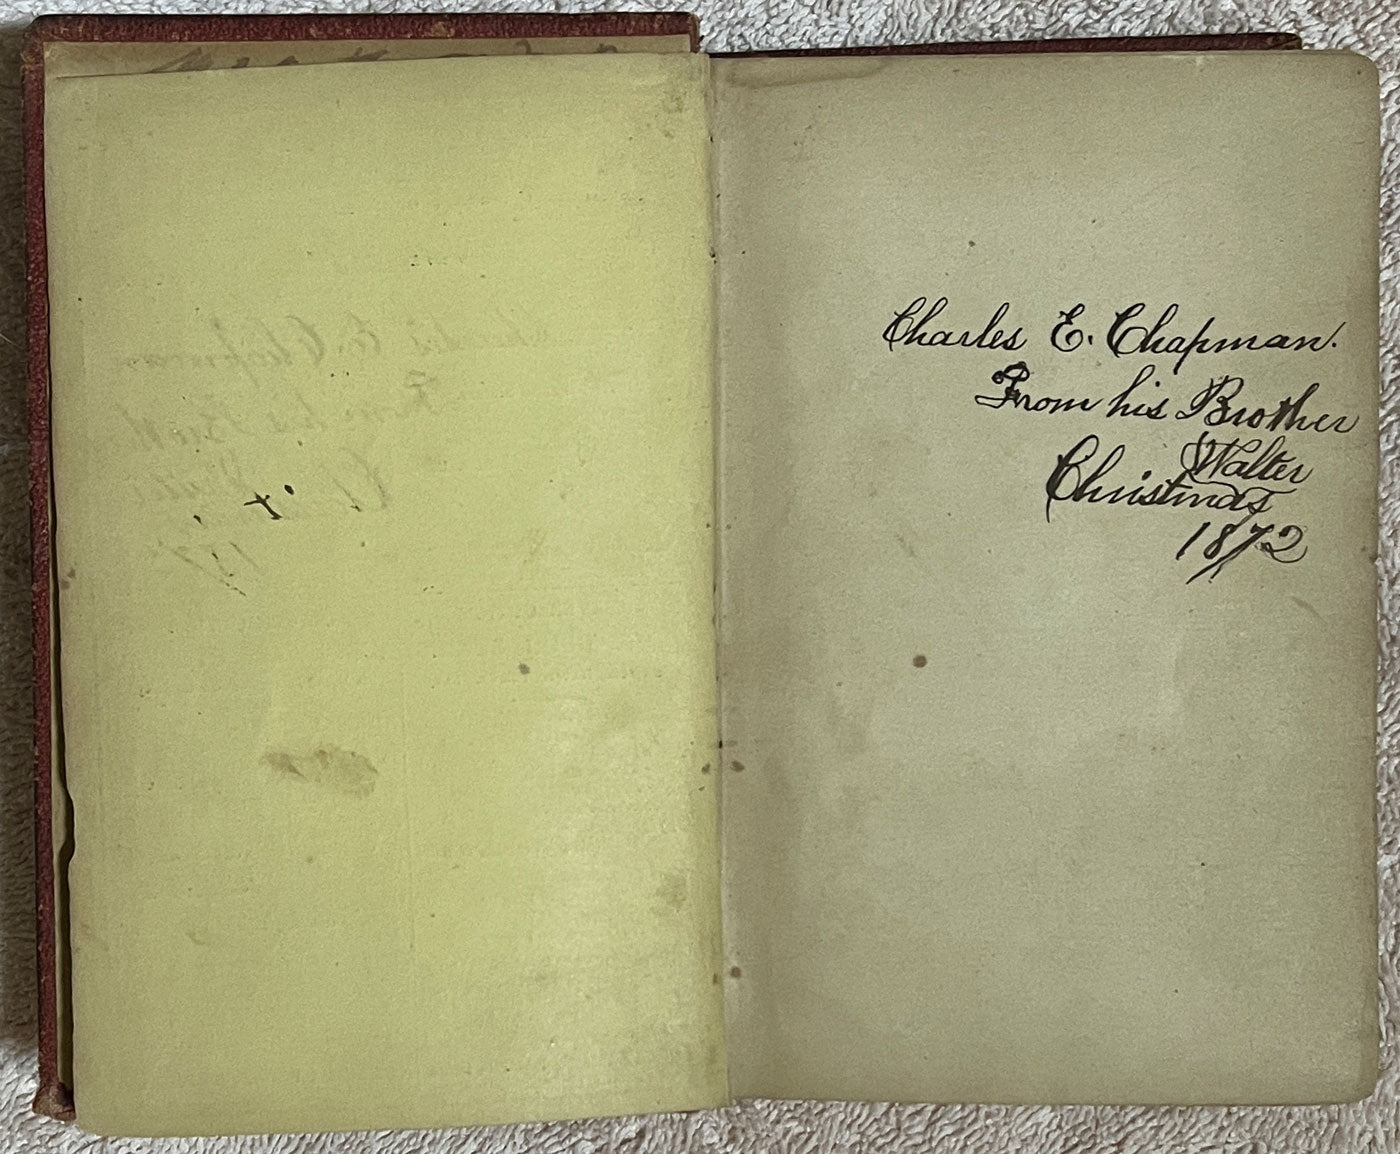 Charles E. Chapman.
From his Brother
Walter
Christmas
1872